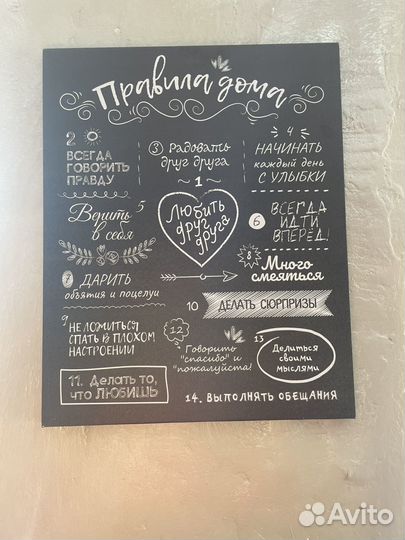 Правила дома
2
ВСЕГДА
ГОВОРИТЬ
ПРАВДУ
3 Радовать
друг друга
4
НАЧИНАТЬ
каждый день
С УЛЫБКИ
1
Любить
друг
друга
Верить 5
в себя
6 ВСЕГДА
ИДТИ
ВПЕРЁД!
7 ДАРИТЬ
объятия и поцелуи
8 Много
смеяться
9
НЕ ЛОЖИТЬСЯ
СПАТЬ В ПЛОХОМ
НАСТРОЕНИИ
10 ДЕЛАТЬ СЮРПРИЗЫ
12
Говорить
"спасибо" и
"пожалуйста!
13
Делиться
своими
мыслями
11. Делать то,
что ЛЮБИШЬ
14. ВЫПОЛНЯТЬ ОБЕЩАНИЯ
Avito